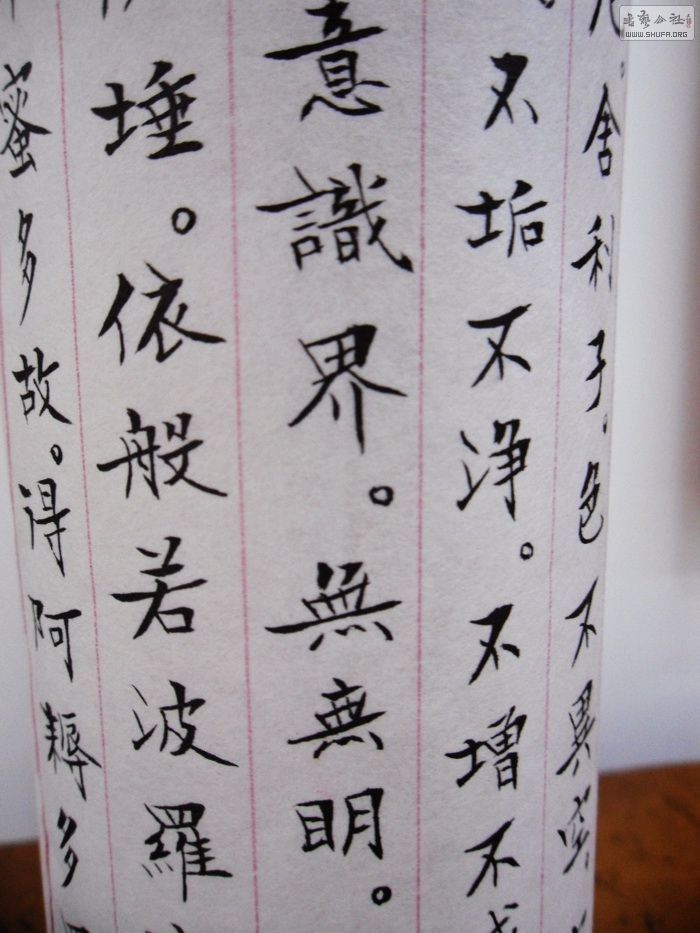 厄。舍利子。色不異空。
不垢不净。不增不
意識界。無無明。
埵。依般若波羅
蜜多故。得阿耨多
書藝公社
WWW.SHUFA.ORG